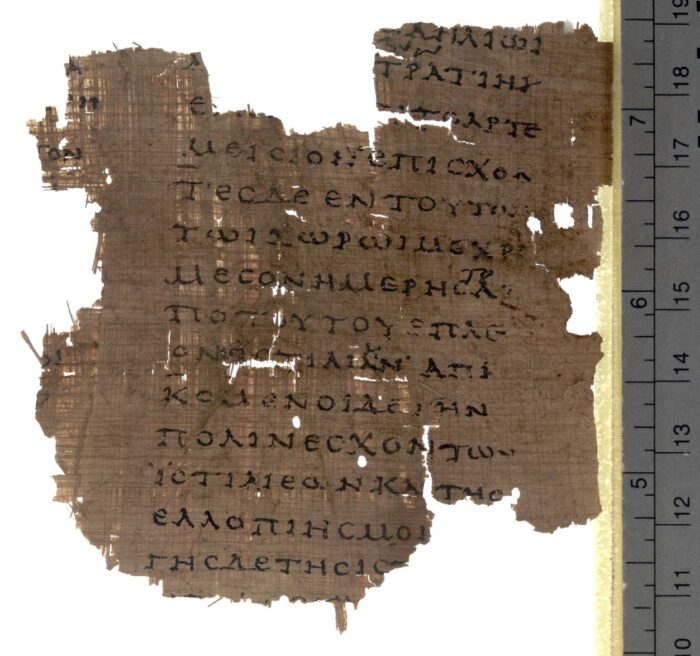 ΗΛΙΩΙ
ΤΡΑΤΙΗ
Ε ΤΟΑΡΤΕ
ΤΟΝ ΜΕΙϹΙΟΝ ΕΠΙϹΧΟΝ
ΤΕϹΔΕΕΝΤΟΥΤΩ
ΤΩΙΧΩΡΩΙΜΕΧΡΙ
ΜΕϹΟΝΗΜΕΡΗϹΑ
ΠΟΤΟΥΤΟΥΕΠΛΕ
ΟΝ ϹΤΙΑΙΑΝ ΑΠΙ
ΚΟΜΕΝΟΙΔΕΤΗΝ
ΠΟΛΙΝΕϹΧΟΝΤΩΝ
ΙϹΤΙΑΙΕΩΝΚΑΙΤΗϹ
ΕΛΛΟΠΙΗϹΜΟΙ
ΓΗϹΔΕΤΗϹΙϹ
19
18
7
17
16
6
15
14
13
5
12
11
10